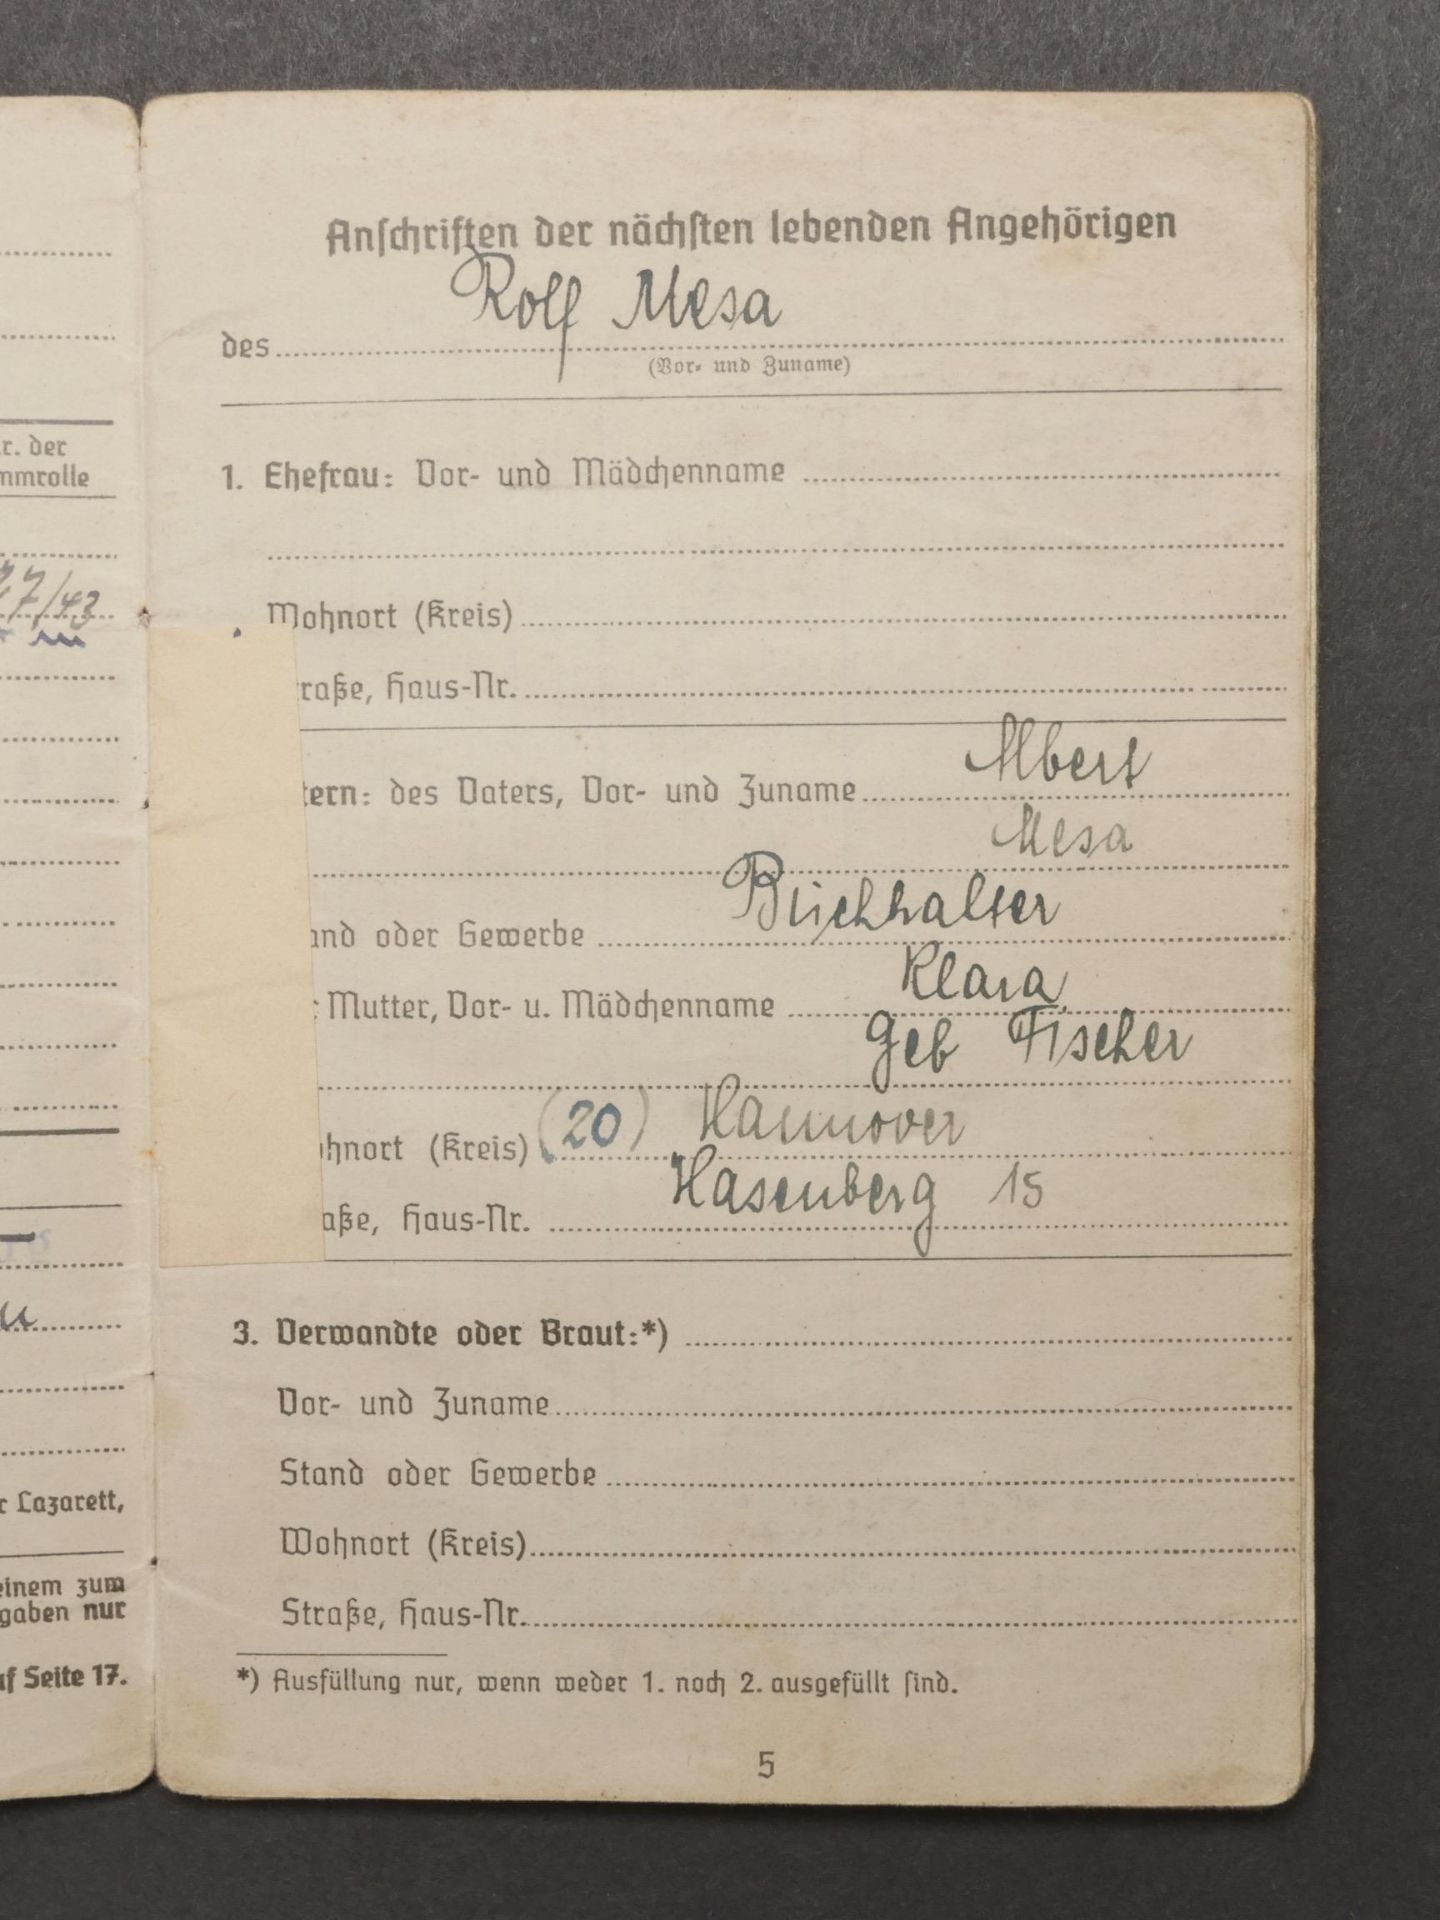 r. der
mmrolle
27/43
r Lazarett,
einem zum
gaben nur
uf Seite 17.
Anschriften der nächsten lebenden Angehörigen
des Rolf Mesa
(Vor- und Zuname)
1. Ehefrau: Vor- und Mädchenname
Wohnort (Kreis)
raße, Haus-Nr.
tern: des Vaters, Vor- und Zuname Albert
Mesa
and oder Gewerbe Buchhalter
r Mutter, Vor- u. Mädchenname Klara
geb Fischer
ohnort (Kreis) (20) Hannover
aße, Haus-Nr. Hasenberg 15
3. Verwandte oder Braut:*)
Vor- und Zuname
Stand oder Gewerbe
Wohnort (Kreis)
Straße, Haus-Nr.
*) Ausfüllung nur, wenn weder 1. noch 2. ausgefüllt sind.
5